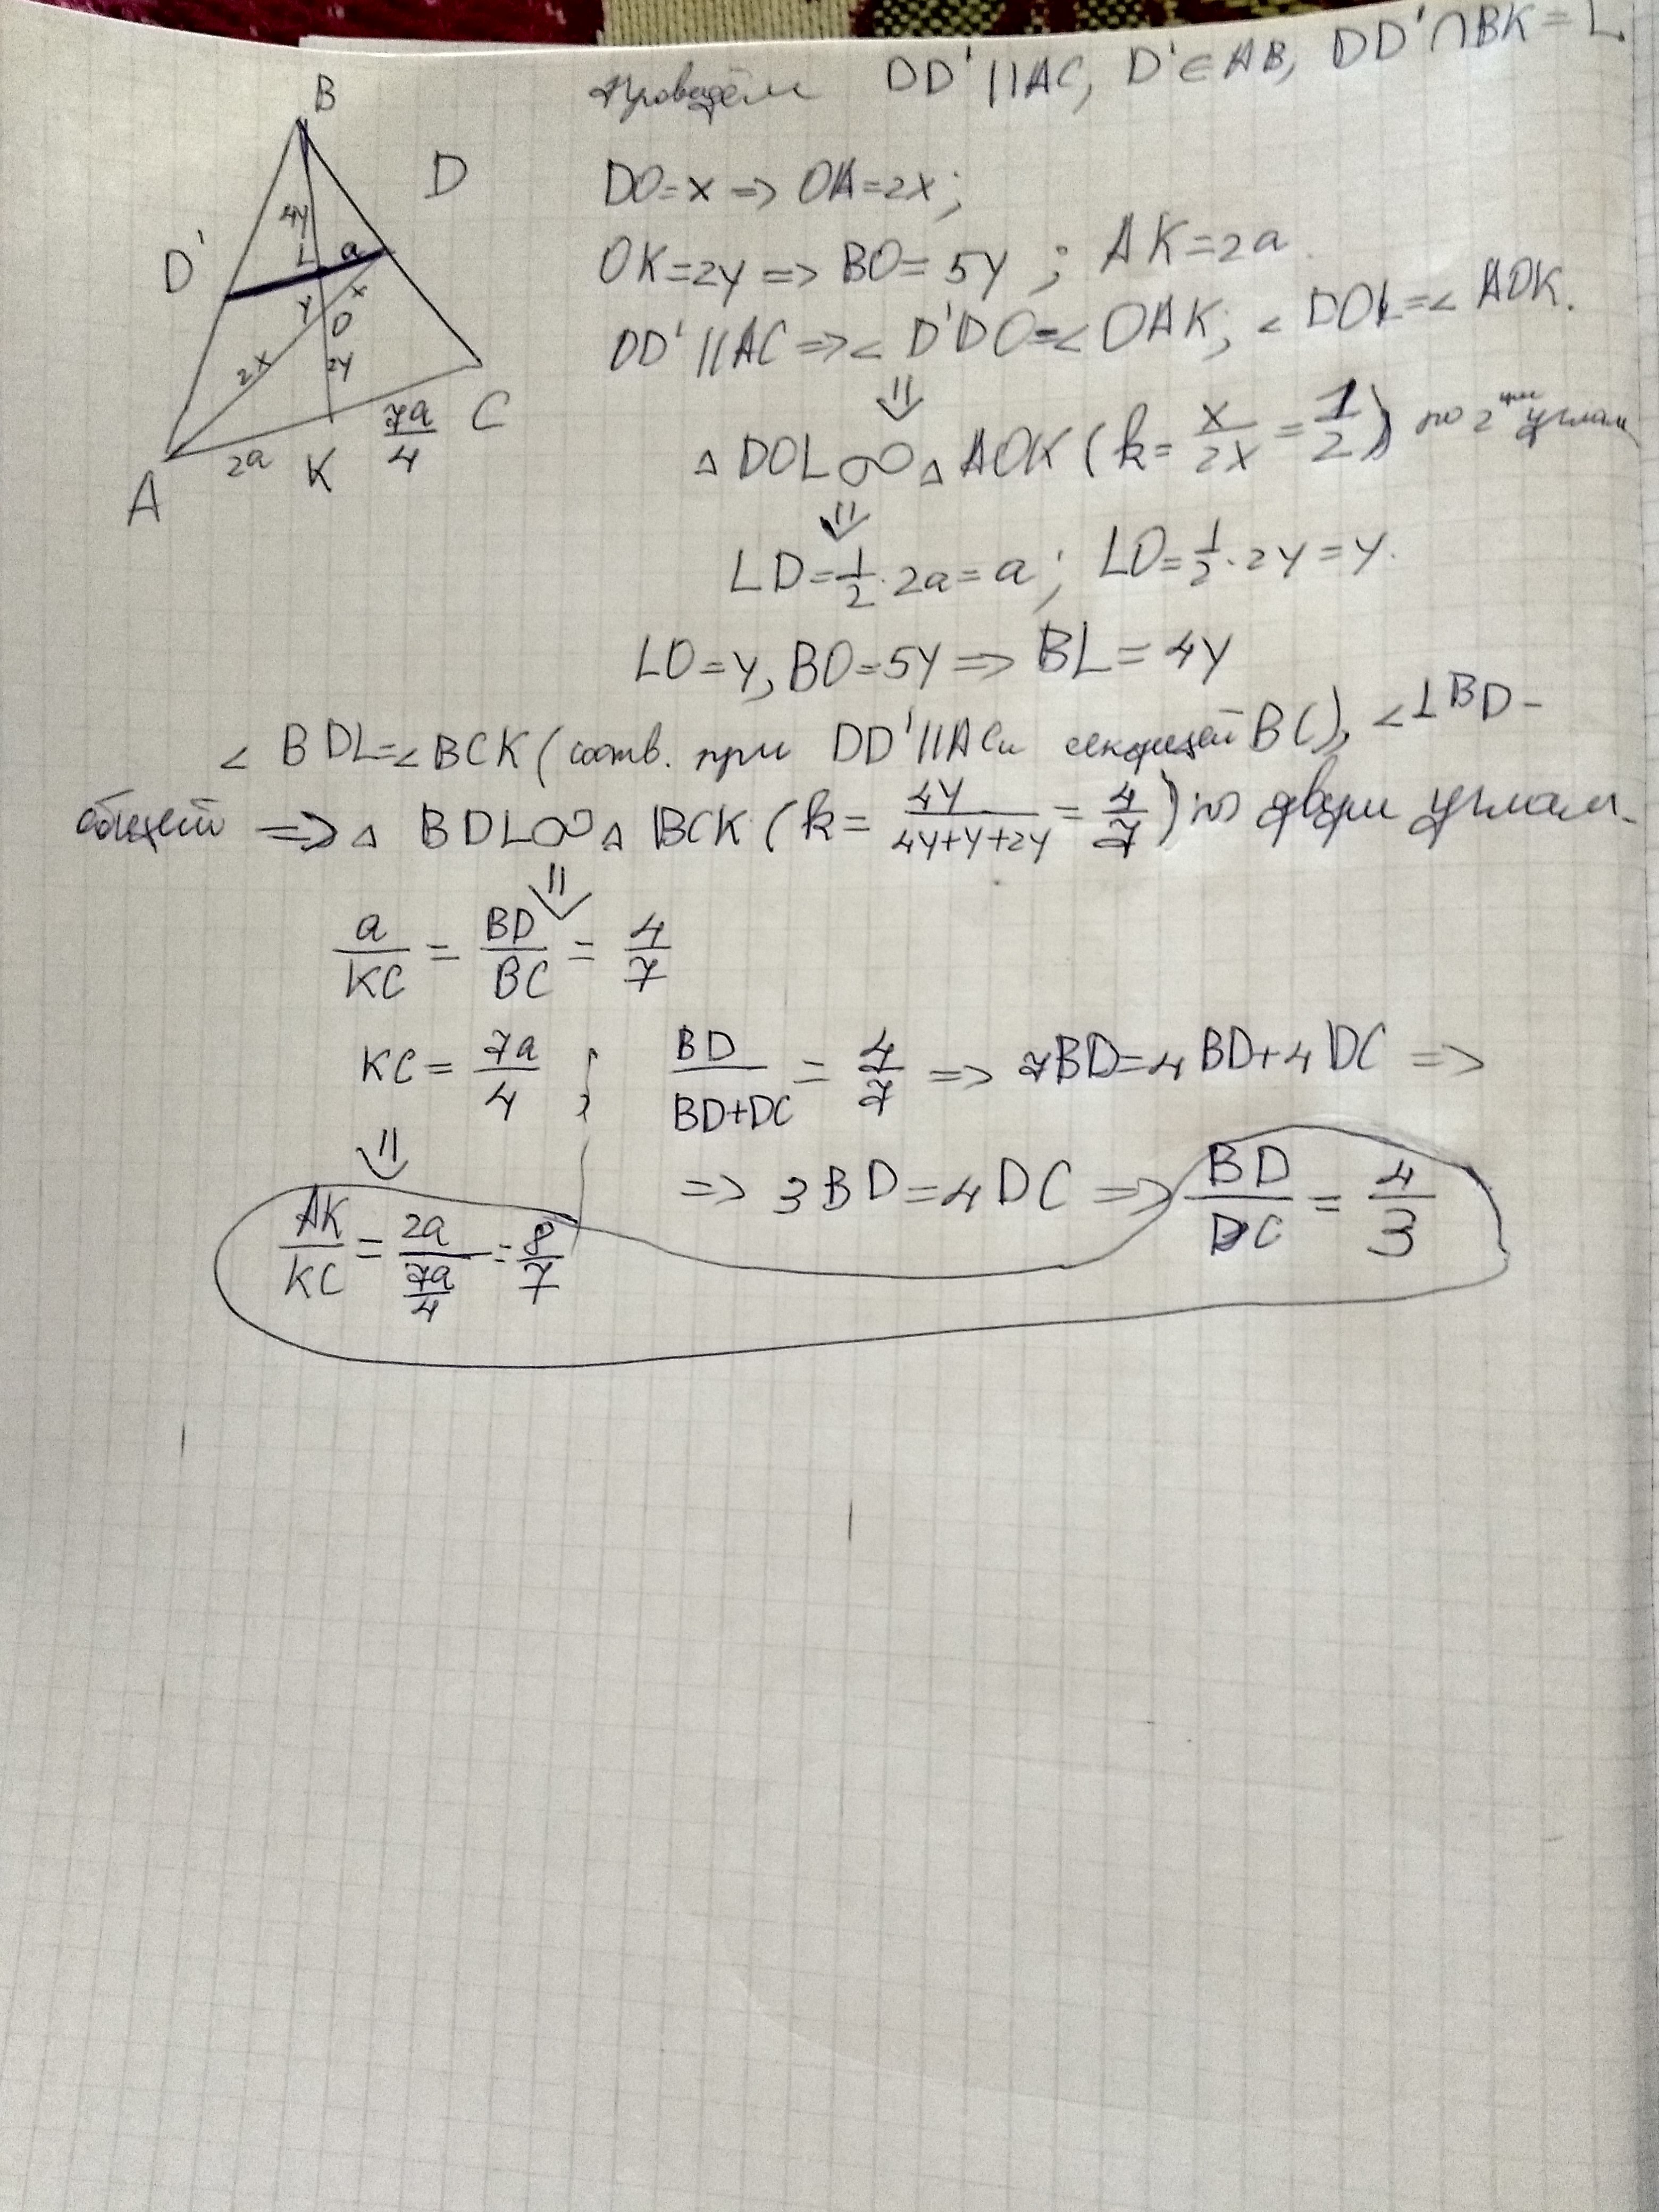 B
D
D'
4y
L
a
y
x
O
2x
2y
7a/4
C
2a
K
A
Проведём DD' || AC, D' ∈ AB, DD' ∩ BK = L.
DO = x => OA = 2x;
OK = 2y => BO = 5y ; AK = 2a.
DD' || AC => ∠D'DO = ∠OAK; ∠DOL = ∠AOK.
⇓
△DOL ∞ △AOK (k = x/2x = 1/2) по 2мя углам
⇓
LD = 1/2 · 2a = a; LO = 1/2 · 2y = y.
LO = y, BO = 5y => BL = 4y
∠BDL = ∠BCK (соотв. при DD' || AC и секущей BC), ∠LBD -
общий => △BDL ∞ △BCK (k = 4y/(4y+y+2y) = 4/7) по двум углам.
⇓
a/KC = BD/BC = 4/7
KC = 7a/4 ; BD/(BD+DC) = 4/7 => 7BD = 4BD + 4DC =>
⇓
=> 3BD = 4DC => BD/DC = 4/3
AK/KC = 2a/(7a/4) = 8/7